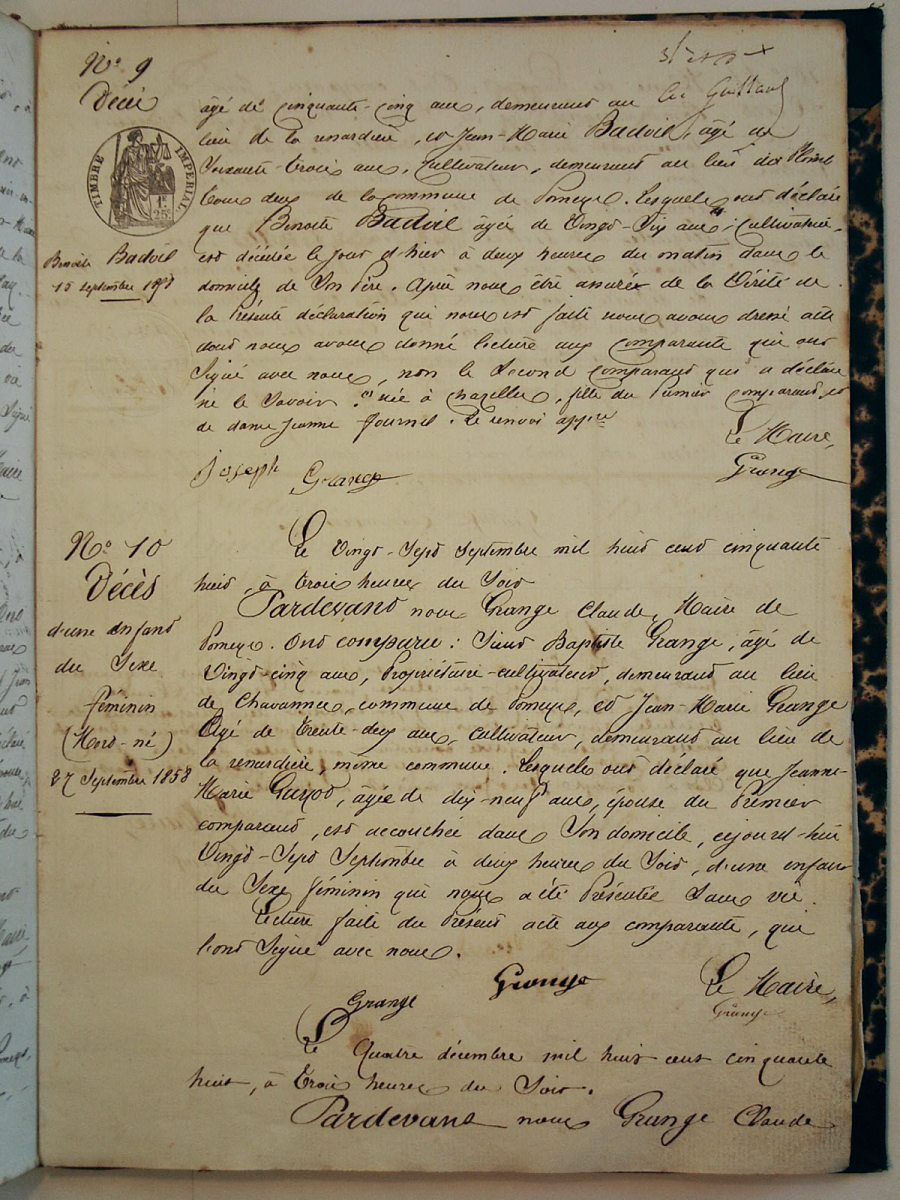 N° 9
Décès
TIMBRE IMPERIAL
1F 25c
Benoite Badoil
15 septembre 1858
âgé de cinquante-cinq ans, demeurant au
lieu de la renardière, et Jean-Marie Badoil, âgé de
soixante-trois ans, cultivateur, demeurant au lieu
tous deux de la commune de Pomeys. Lesquels ont déclaré
que Benoite Badoil âgée de vingt-six ans, cultivatrice,
est décédée le jour d'hier à deux heures du matin dans le
domicile de son père. Après nous être assuré de la vérité de
la présente déclaration qui nous est faite nous avons dressé acte
dont nous avons donné lecture aux comparants qui ont
signé avec nous, non le second comparant qui a déclaré
ne le savoir. née à chazelles, fille du premier comparant, et
de dame jeanne fournel. le renvoi appvé
Le Maire,
joseph Grange Grange
N° 10
Décès
d'une enfant
du sexe
féminin
(Mort-né)
27 Septembre 1858
Le vingt-sept septembre mil huit cent cinquante
huit, à trois heures du soir
Pardevant nous Grange Claude, Maire de
Pomeys. Ont comparu : Sieur Baptiste Grange, âgé de
vingt-cinq ans, Propriétaire-cultivateur, demeurant au lieu
de Chavannes, commune de Pomeys, et Jean-Marie Grange
âgé de trente-deux ans, cultivateur, demeurant au lieu de
la renardière, même commune. Lesquels ont déclaré que Jeanne-
Marie Guyot, âgée de dix-neuf ans, épouse du Premier
comparant, est accouchée dans son domicile, cejourd-hui
vingt-sept septembre à deux heures du soir, d'une enfant
du sexe féminin qui nous a été présentée sans vie.
Lecture faite du présent acte aux comparants, qui
l'ont signé avec nous.
Grange Grange Le Maire,
Grange
Le quatre décembre mil huit cent cinquante
huit, à trois heures du soir.
Pardevant nous Grange Claude